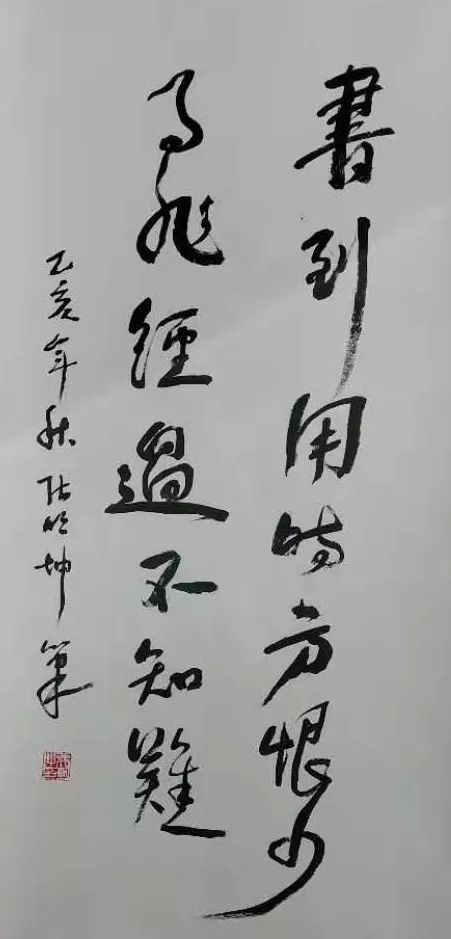 書到用時方恨少
事非經過不知難
乙亥年秋 張 坤 筆